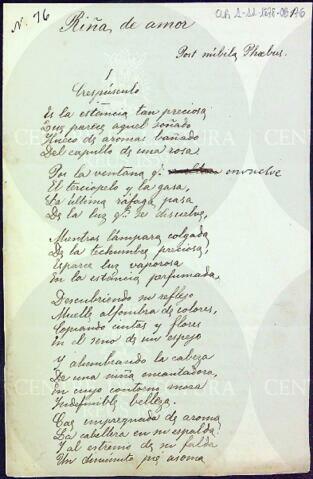 N. 76
Riña de amor
Post nubila Phoebus.
I
Crespúsculo
Es la estancia tan preciosa
Que parece aquel soñado
Hueco de aromas bañado
Del capullo de una rosa.
Por la ventana q. envuelve
El terciopelo y la gasa,
La última ráfaga pasa
De la luz q. se disuelve,
Mientras lámpara colgada
De la techumbre preciosa,
Esparce luz vaporosa
En la estancia perfumada,
Descubriendo su reflejo
Muelle alfombra de colores,
Copiando cintas y flores
En el seno de un espejo
Y alumbrando la cabeza
De una niña encantadora,
En cuyo contorno mora
Indefinible belleza.
Cae impregnada de aroma
La cabellera en su espalda
Y al extremo de su falda
Un diminuto pié asoma